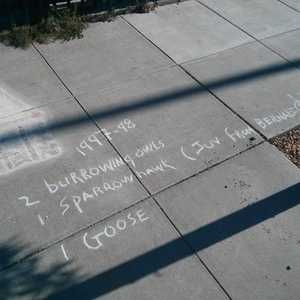 1997-98
2 BURROWING OWLS
1 SPARROWHAWK (JUV FROM
1 GOOSE